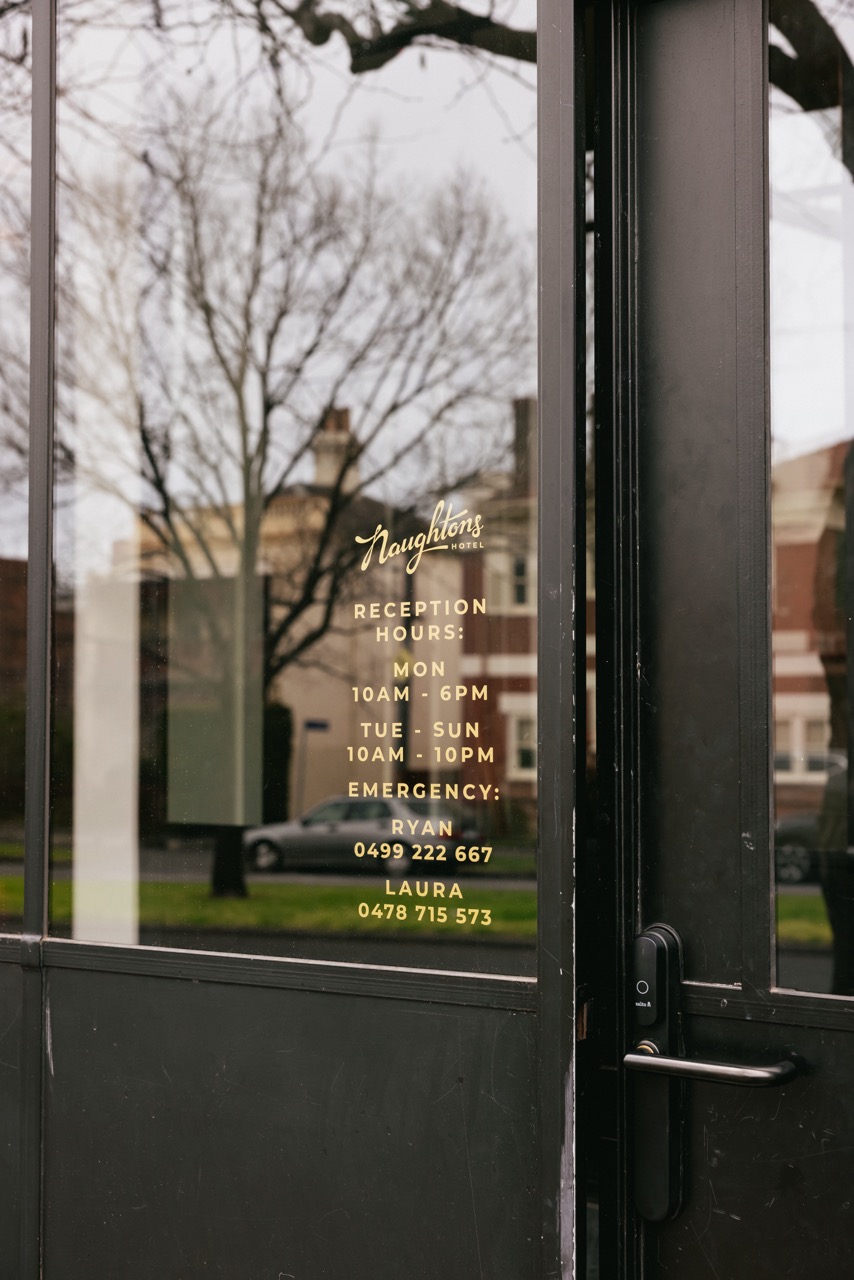 Naughtons
HOTEL
RECEPTION
HOURS:
MON
10AM - 6PM
TUE - SUN
10AM - 10PM
EMERGENCY:
RYAN
0499 222 667
LAURA
0478 715 573
salto